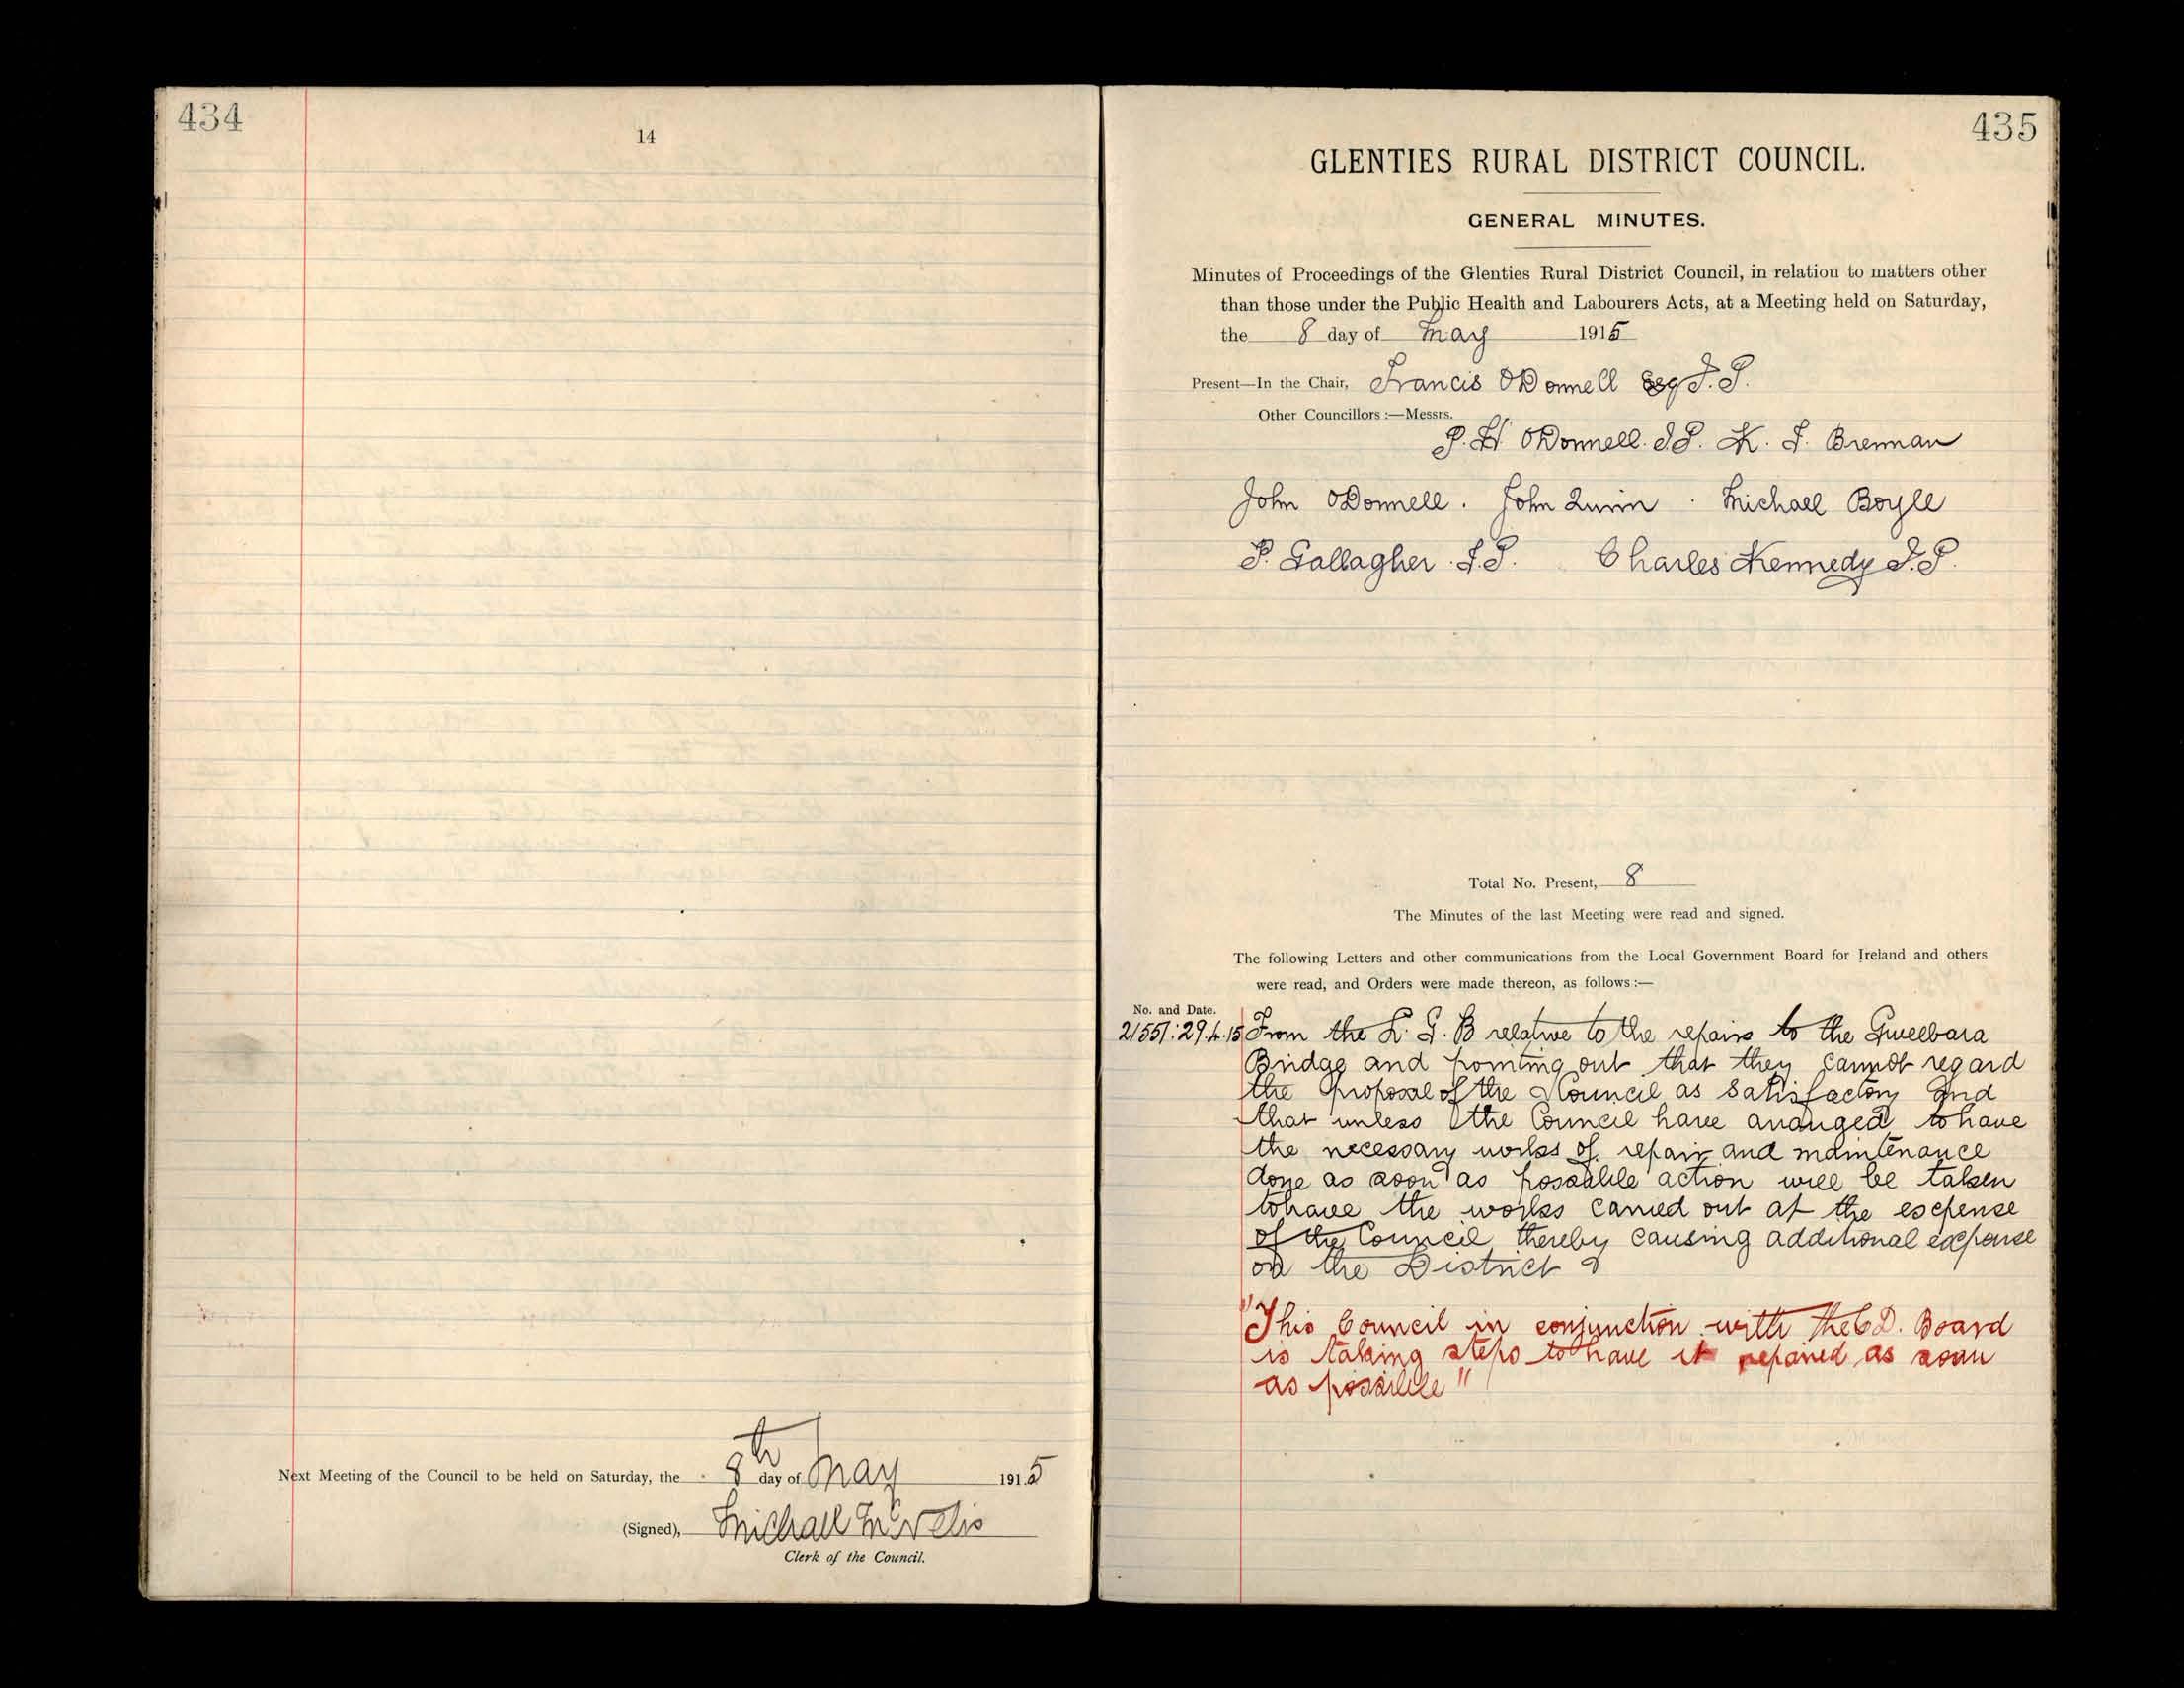 434
14
Next Meeting of the Council to be held on Saturday, the 8th day of May 1915
(Signed), Michael McNelis
Clerk of the Council.
435
GLENTIES RURAL DISTRICT COUNCIL.
GENERAL MINUTES.
Minutes of Proceedings of the Glenties Rural District Council, in relation to matters other
than those under the Public Health and Labourers Acts, at a Meeting held on Saturday,
the 8 day of May 1915
Present—In the Chair, Francis O'Donnell Esq J.P.
Other Councillors :—Messrs.
P. H O'Donnell. J.P. K. F. Brennan
John O'Donnell. John Quinn. Michael Boyle
P. Gallagher. J.P. Charles Kennedy J.P.
Total No. Present, 8
The Minutes of the last Meeting were read and signed.
The following Letters and other communications from the Local Government Board for Ireland and others
were read, and Orders were made thereon, as follows :—
No. and Date.
21551: 29.4.15 From the L. G. B relative to the repairs to the Gweebara
Bridge and pointing out that they cannot regard
the proposal of the Council as satisfactory and
that unless the Council have arranged to have
the necessary works of repair and maintenance
done as soon as possible action will be taken
to have the works carried out at the expense
of the Council thereby causing additional expense
on the District
"This Council in conjunction with the C.D. Board
is taking steps to have it repaired as soon
as possible"